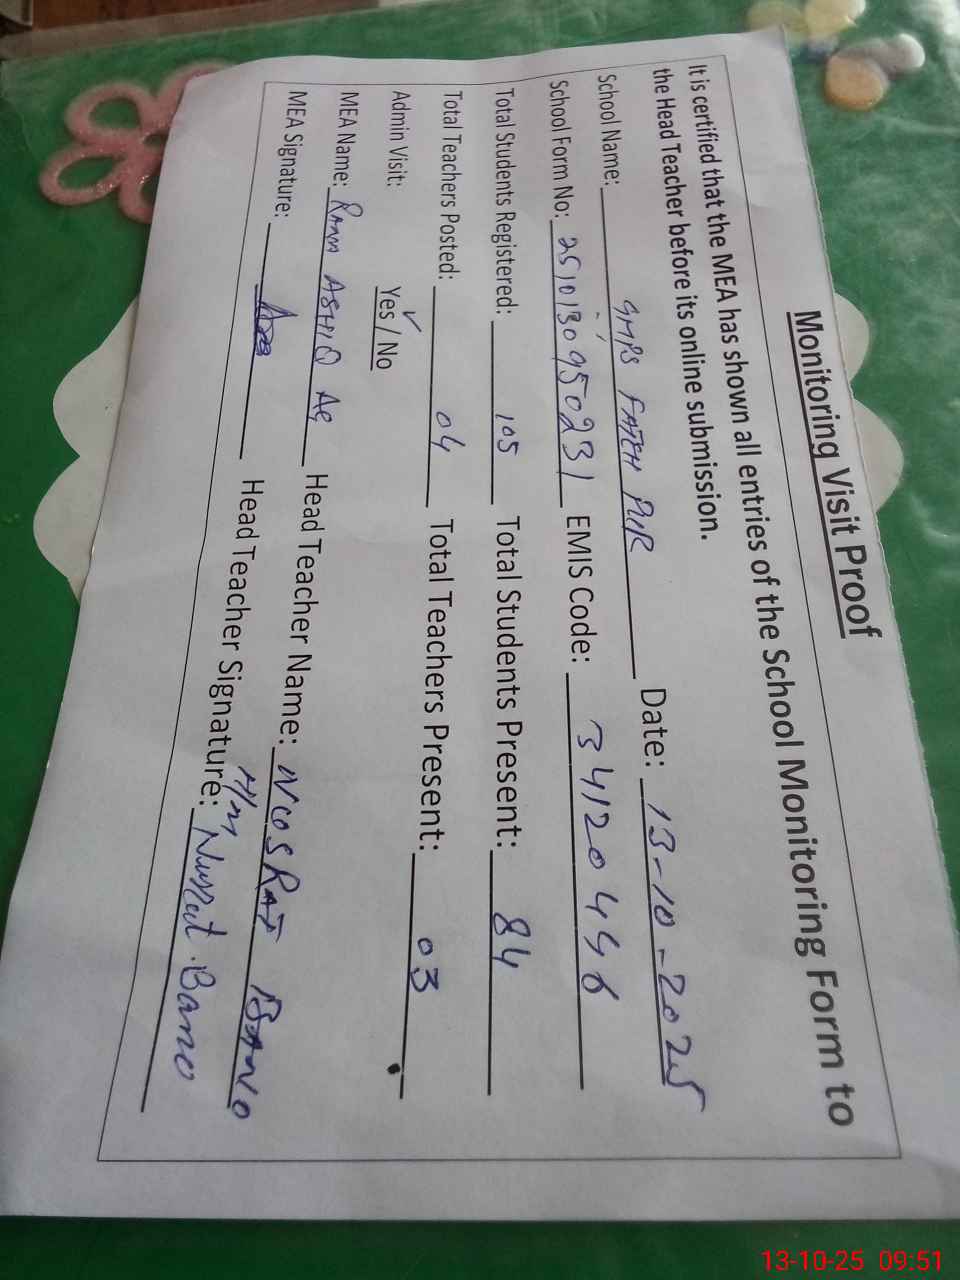 Monitoring Visit Proof
It is certified that the MEA has shown all entries of the School Monitoring Form to
the Head Teacher before its online submission.
School Name: GMPS FATEH PUR Date: 13-10-2025
School Form No: 2510130950231 EMIS Code: 34120446
Total Students Registered: 105 Total Students Present: 84
Total Teachers Posted: 04 Total Teachers Present: 03
Admin Visit: Yes / No
MEA Name: RANA ASHIQ Head Teacher Name: NOSRAT BANO
MEA Signature: Head Teacher Signature: H/M Nusrat Bano
13-10-25 09:51